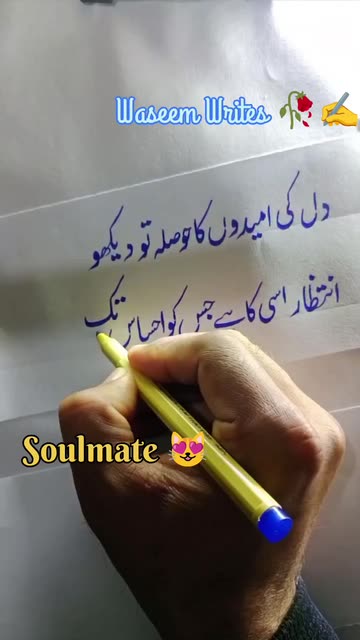 Waseem Writes 🥀 ✍️
دل کی امیدوں کا حوصلہ تو دیکھو
انتظار اسی کا ہے جس کو احساس تک
Soulmate 😻